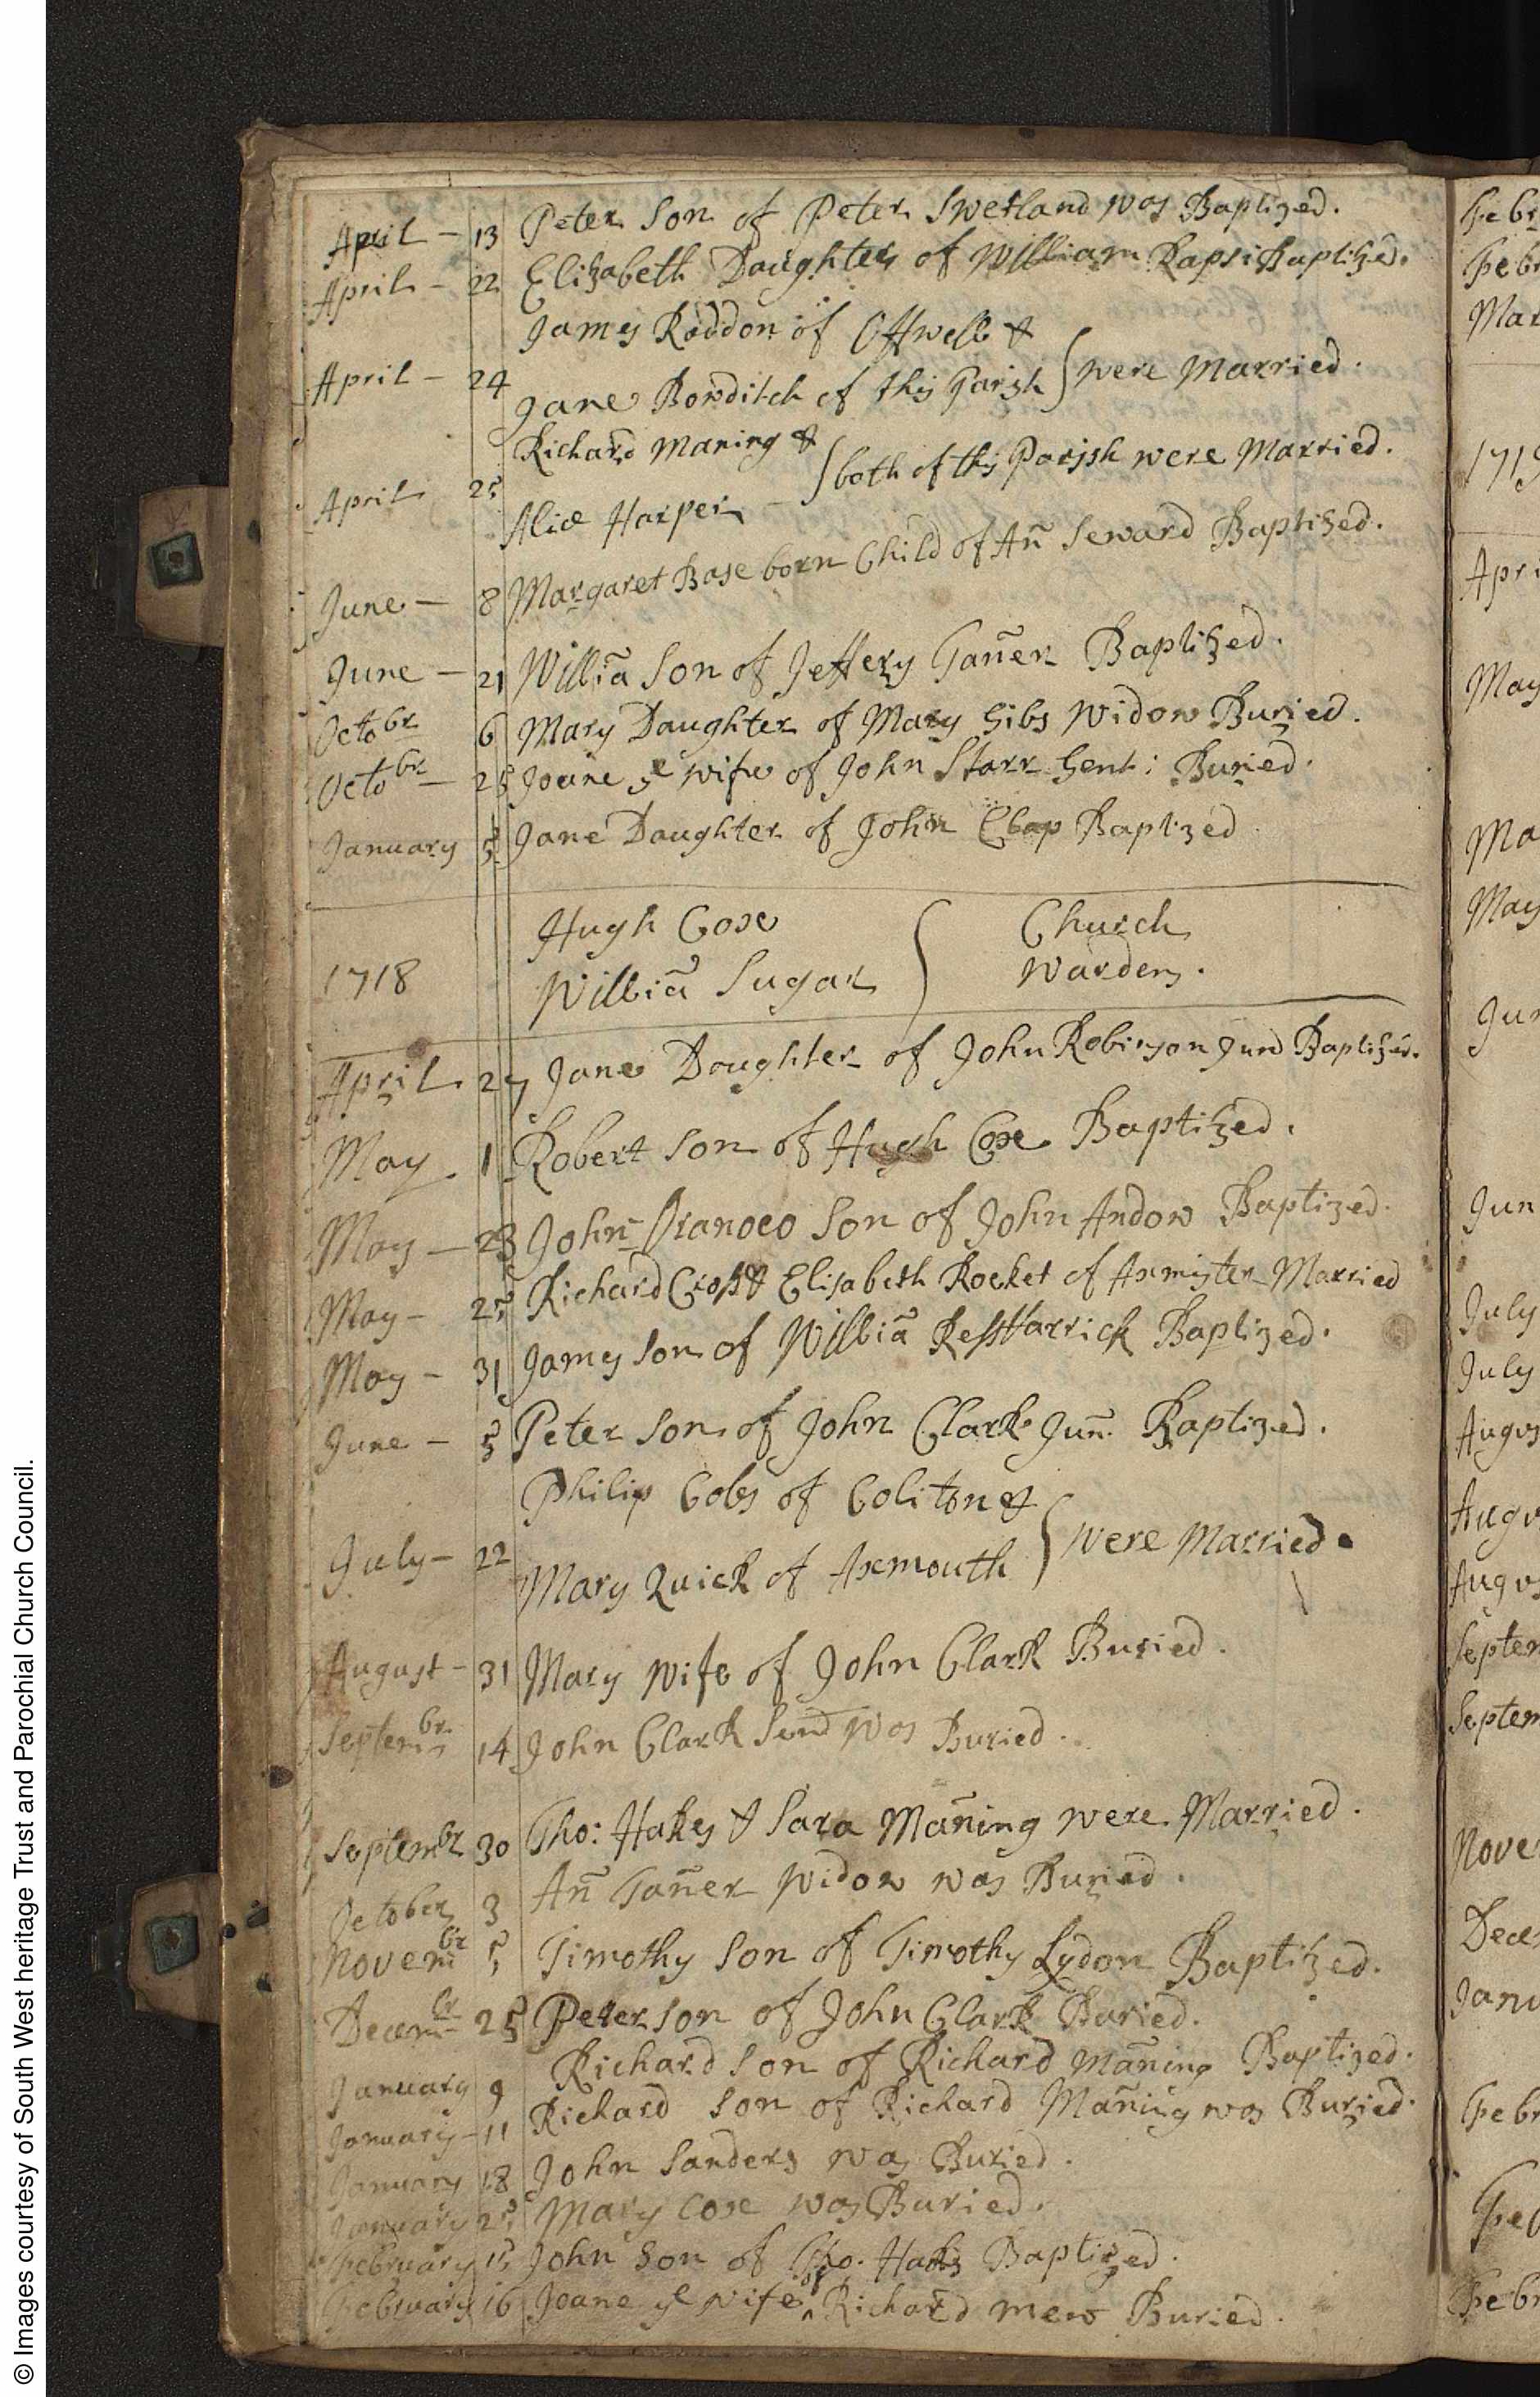 April – 13 Peter Son of Peter Swetland was Baptized.
April – 22 Elizabeth Daughter of William Raps Baptized.
James Roddon of Offwell &
April – 24 Jane Bowditch of this Parish } were Married.
Richard Maning &
April 25 Alice Harper – } both of this Parish were Married.
June – 8 Margaret Base born Child of Añ Seward Baptized.
June – 21 Williã Son of Jeffery Tañer Baptized.
Octobr 6 Mary Daughter of Mary Gibs Widow Buried.
Octobr – 25 Joane ye wife of John Starr Gent: Buried.
January 5 Jane Daughter of John Clap Baptized
Hugh Coxe } Church
1718 Williã Sugar } Wardens.
April 27 Jane Daughter of John Robinson Junr Baptized.
May 1 Robert Son of Hugh Coxe Baptized.
May – 23 John Son of John Andow Baptized.
May – 25 Richard Cross & Elisabeth Rocket of Axmister Married
May – 31 James Son of Williã Baptized.
June – 5 Peter Son of John Clark Juñ. Baptized.
Philip Cobs of Coliton &
July – 22 Mary Quick of Axmouth } were Married.
August – 31 Mary wife of John Clark Buried.
Septembr 14 John Clark Senr was Buried.
Septembr 30 Tho: Hakes & Sara Mañing were Married.
October 3 Añ Tañer Widow was Buried.
Novembr 5 Timothy Son of Timothy Lydon Baptized.
Decembr 25 Peter Son of John Clark Buried.
January 9 Richard Son of Richard Mañing Baptized.
January – 11 Richard Son of Richard Mañing was Buried.
January 18 John Sanders was Buried.
January 25 Mary Coxe was Buried.
February 15 John Son of Tho. Haks Baptized.
February 16 Joane ye wife of Richard Mew Buried.
Febr
Febr
Mar
1719
Apri
May
Ma
May
Jun
Jun
July
July
Augus
Augu
Augus
Septem
Septem
Novem
Decem
Janu
Febr
Feb
Febr
© Images courtesy of South West heritage Trust and Parochial Church Council.